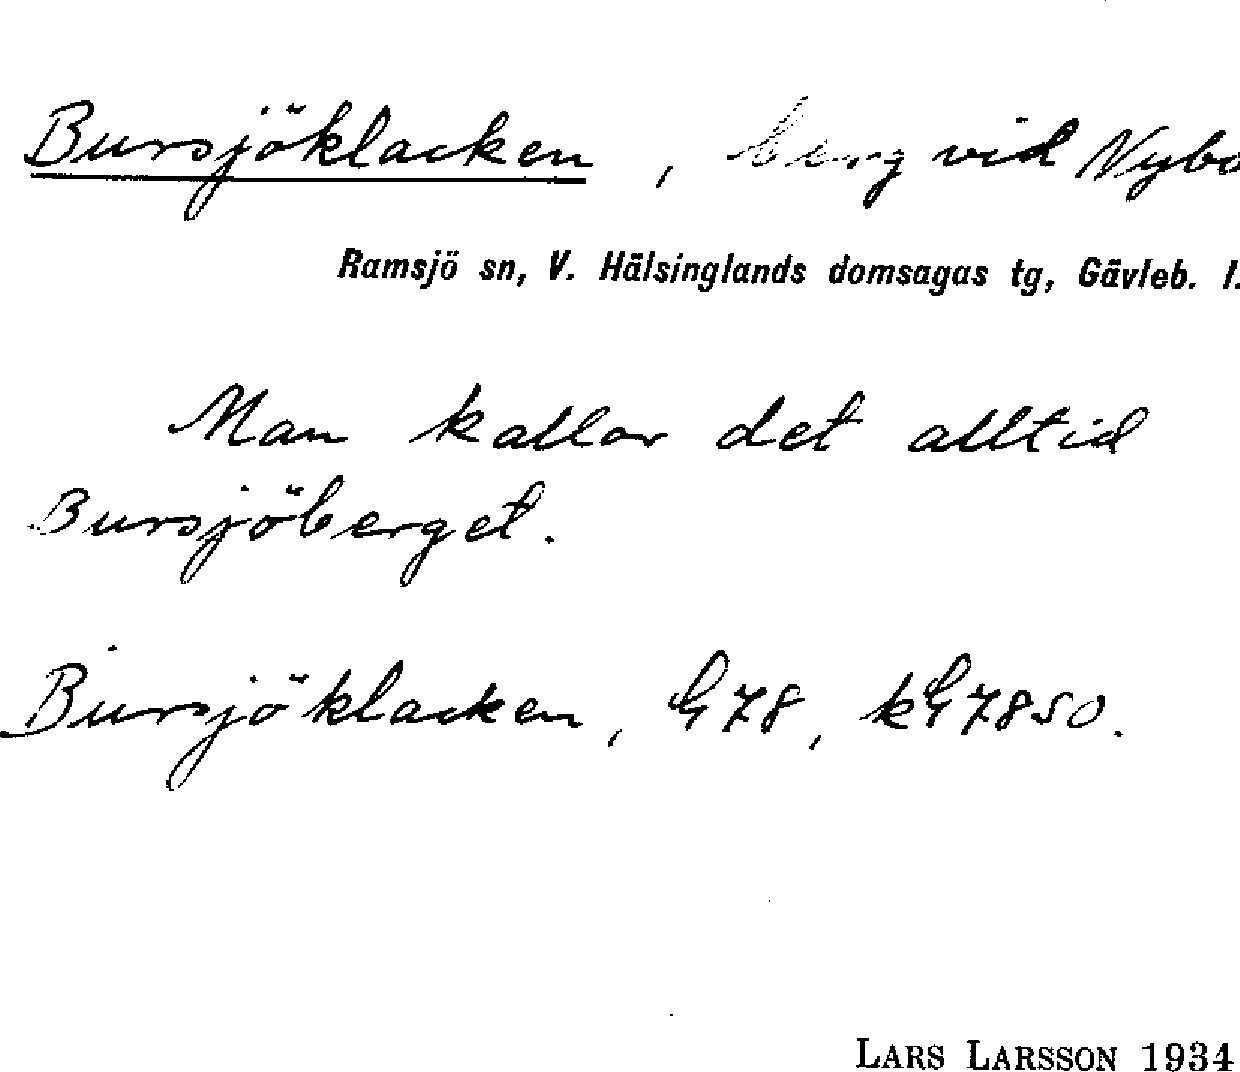 Bursjöklacken, berg vid Nybo
Ramsjö sn, V. Hälsinglands domsagas tg, Gävleb. l.
Man kallar det alltid
Bursjöberget.
Bursjöklacken, G78, kG7850.
LARS LARSSON 1934